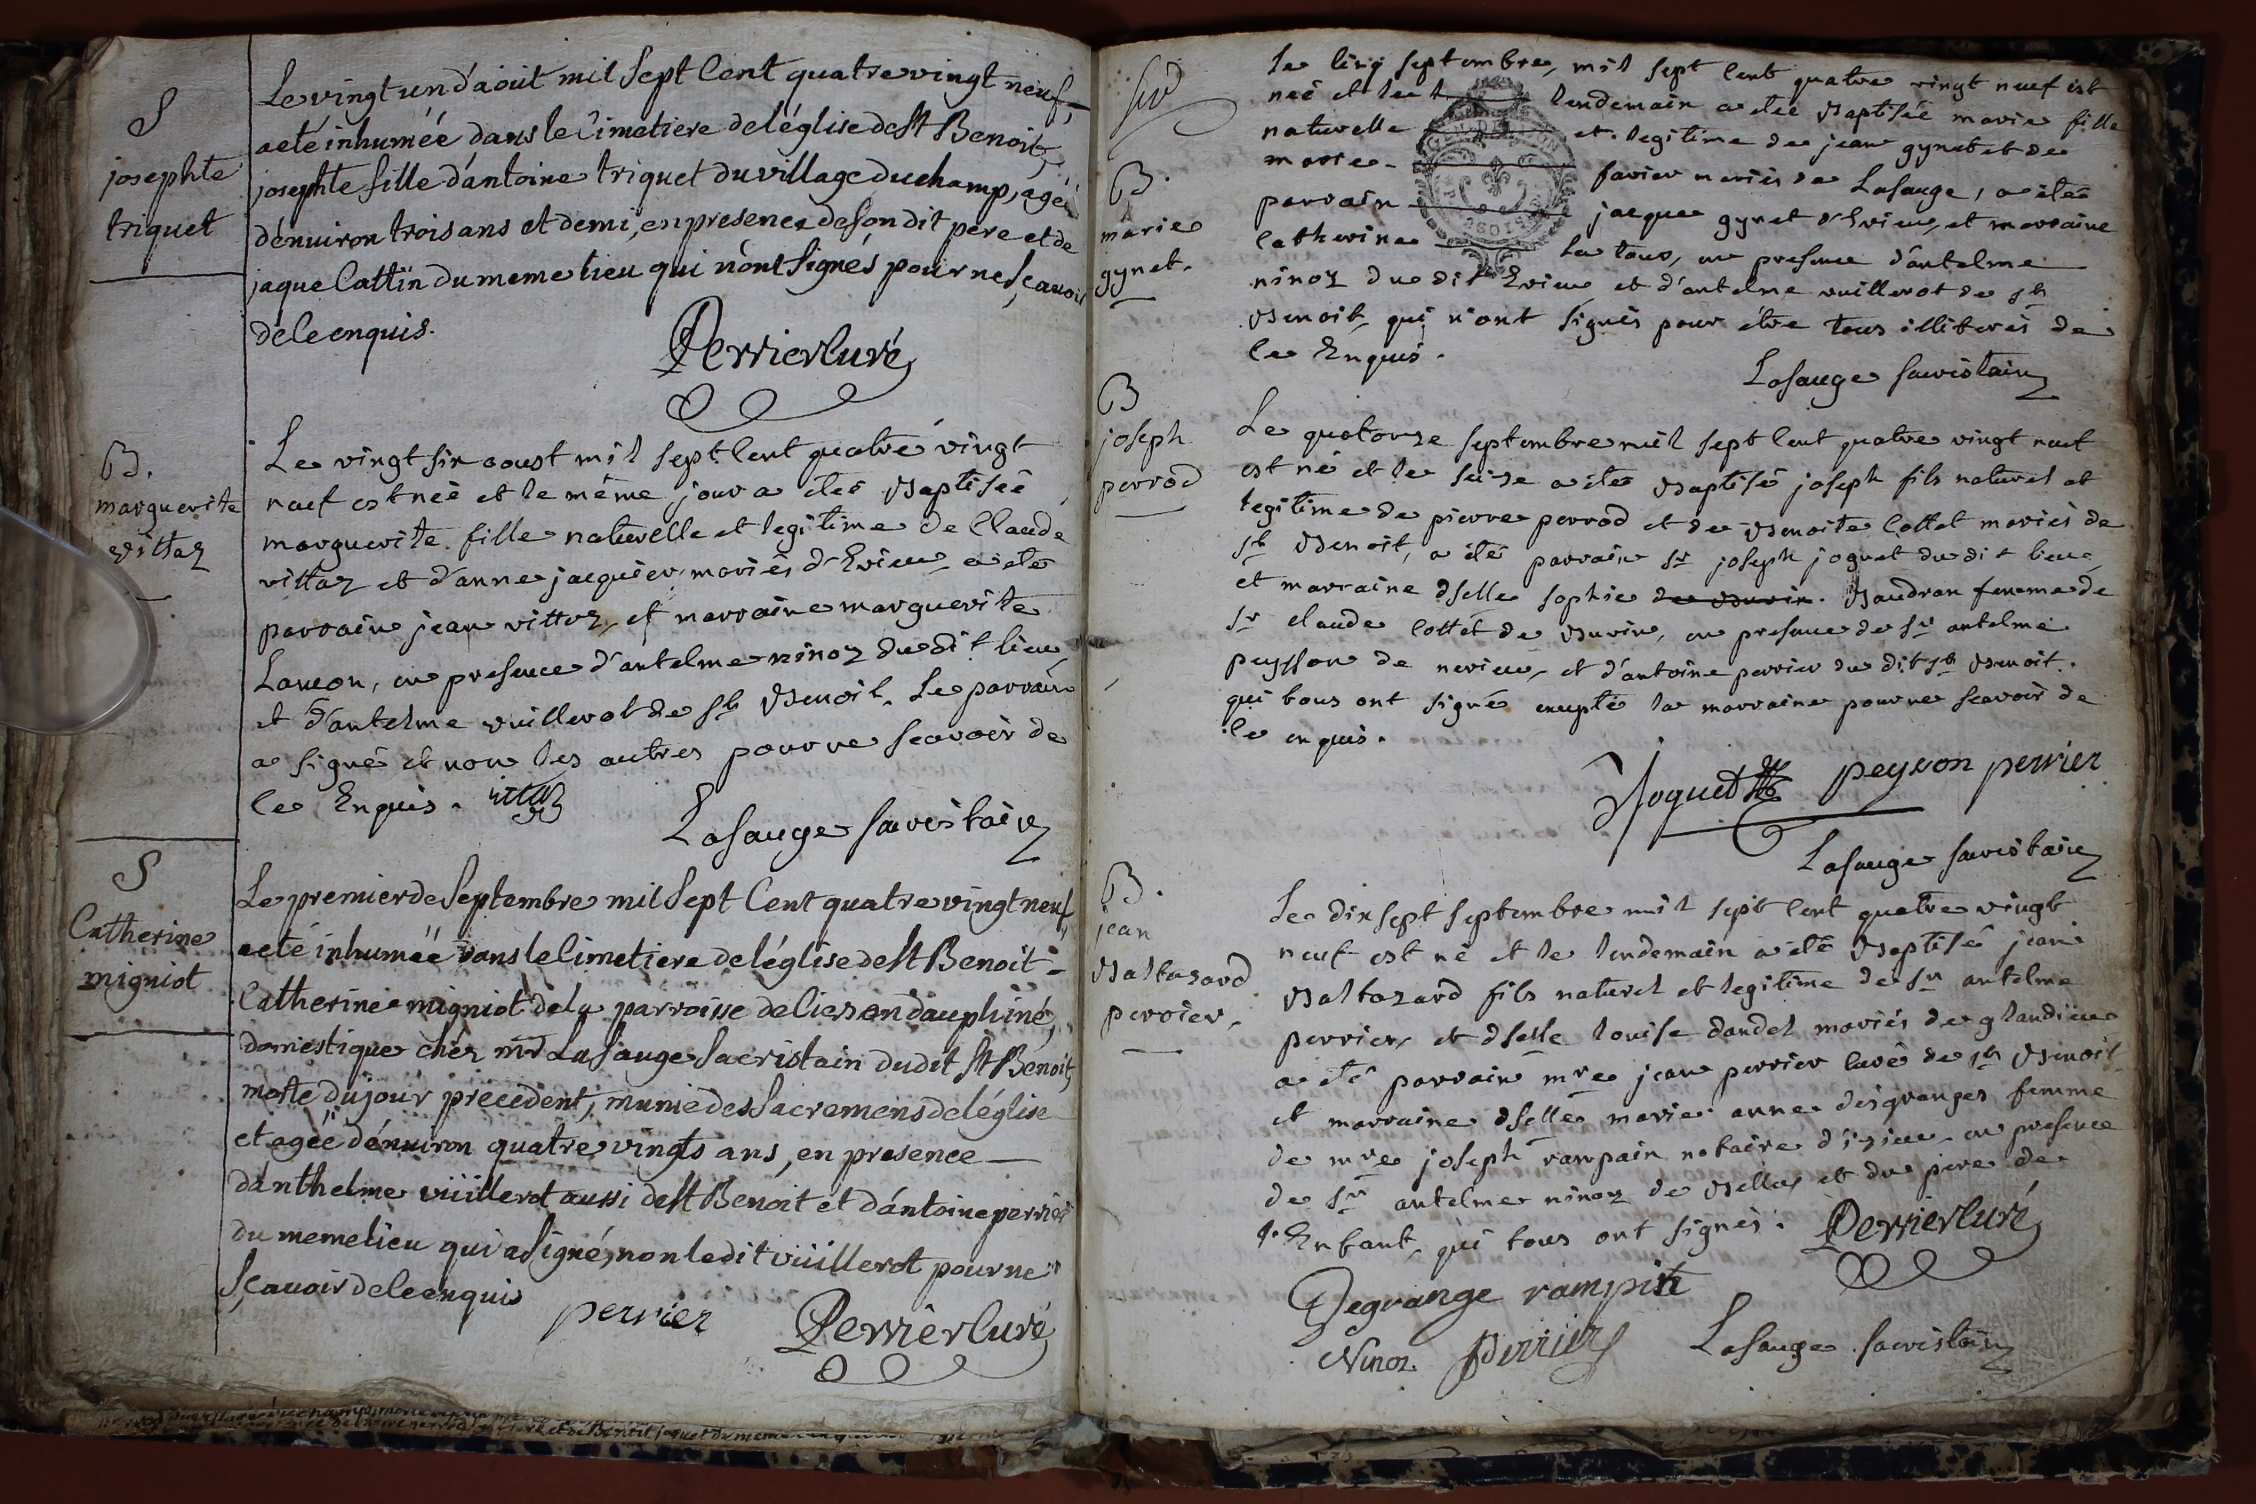 S
josephte
triquet
Le vingt un d'aoùt mil sept Cent quatre vingt neuf,
a eté inhumée dans le Cimetiere de l'église de St Benoit,
josephte fille d'antoine triquet du village du champ, agée
d'enuiron trois ans et demi, en presence de son dit pere et de
jaque Cattin du meme lieu qui n'ont signés pour ne sçauoir
de ce enquis.
Perrier Curé
B.
marguerite
vittoz
Le vingt six aoust mil sept Cent quatre vingt
neuf est neé et le même jour a eteé Baptiseé
marguerite fille naturelle et legitime de Claude
vittoz et d'anne jacquier mariés d'Evieu, a eté
parrain jean vittoz, et marraine marguerite
Lancon, en presence d'antelme ninoz du dit lieu,
et d'antelme vuillerot de St Benoit. Le parrain
a signé et non les autres pour ne scavoir de
ce Enquis. vittoz
Lasauge sacristain
S
Catherine
migniot
Le premier de Septembre mil Sept Cent quatre vingt neuf,
a eté inhumée dans le Cimetiere de l'église de St Benoit
Catherine migniot de la parroisse de Cies en dauphiné,
domestique chéz mr Lasauge Sacristain dudit St Benoit,
morte du jour precedent, munie des Sacremens de l'église
et agée d'enuiron quatre vingts ans, en presence
d'anthelme viüillerot aussi de St Benoit et d'antoine perrier
du meme lieu qui a signé, non ledit viüillerot pour ne
sçauoir de ce enquis
perrier Perrier Curé
B.
marie
gynet.
Le Cinq septembre, mil sept Cent quatre vingt neuf est
neé et le lendemain a eteé Baptiseé marie fille
naturelle et legitime de jean gynet et de
marie favier mariés de Lasauge, a eteé
parrain jacques gynet d'Evieu, et marraine
Catherine La tour, en presence d'antelme
ninoz du dit Evieu et d'antelme vuillerot de St
Benoit, qui n'ont signés pour être tous illiterés de
ce Enquis.
Lasauge sacristain
B
joseph
perrod
Le quatorze septembre mil sept Cent quatre vingt neuf
est né et le seize a eté Baptisé joseph fils naturel et
legitime de pierre perrod et de Benoite Cottet mariés de
St Benoit, a été parrain Sr joseph joguet du dit lieu,
et marraine dselle sophie de Buvin. Baudran femme de
Sr claude Cottet de Buvin, en presence de Sr antelme
peysson de nerieu, et d'antoine perrier du dit St Benoit.
qui tous ont signé exceptée la marraine pour ne scavoir de
ce enquis.
Joguet peysson perrier
Lasauge sacristain
B.
jean
Baltazard
perrier.
Le dixsept septembre mil sept Cent quatre vingt
neuf est né et le lendemain a eté Baptisé jean
Baltazard fils naturel et legitime de Sr antelme
perrier, et dselle louise dandel mariés de glandieu
a eté parrain mre jean perrier Curé de St Benoit
et marraine dselle marie anne desgranges femme
de mre joseph rampain notaire d'izieu en presence
de Sr antelme ninoz de Bellay et du pere de
l'Enfant, qui tous ont signés. Perrier Curé
Degrange rampin
Ninoz Perrier Lasauge sacristain